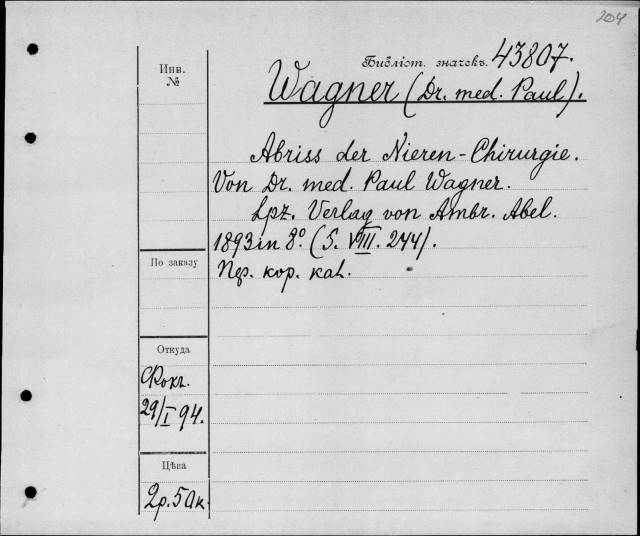 204
Библіот. значекъ. 43807.
Инв.
№
Wagner (Dr. med. Paul).
Abriss der Nieren-Chirurgie.
Von Dr. med. Paul Wagner.
Lpz. Verlag von Ambr. Abel.
1893 in 8º. (S. VIII. 244).
кор. kat.
По заказу
Откуда
29/I 94.
Цѣва
2р. 50к.